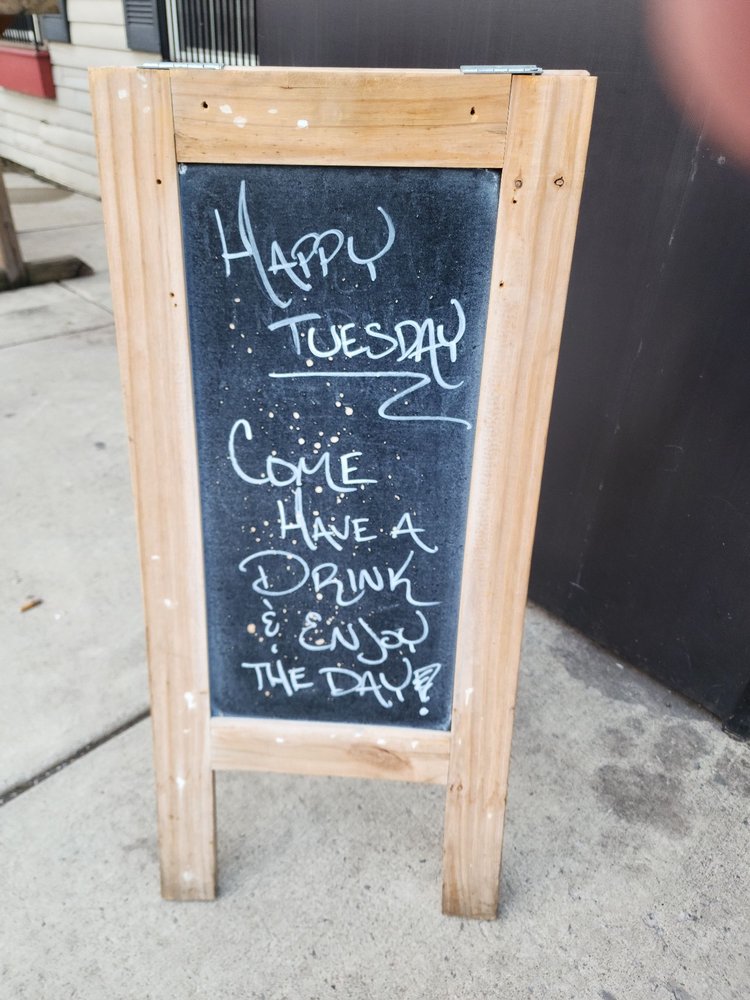 HAPPY
TUESDAY
COME
HAVE A
DRINK
& ENJOY
THE DAY!